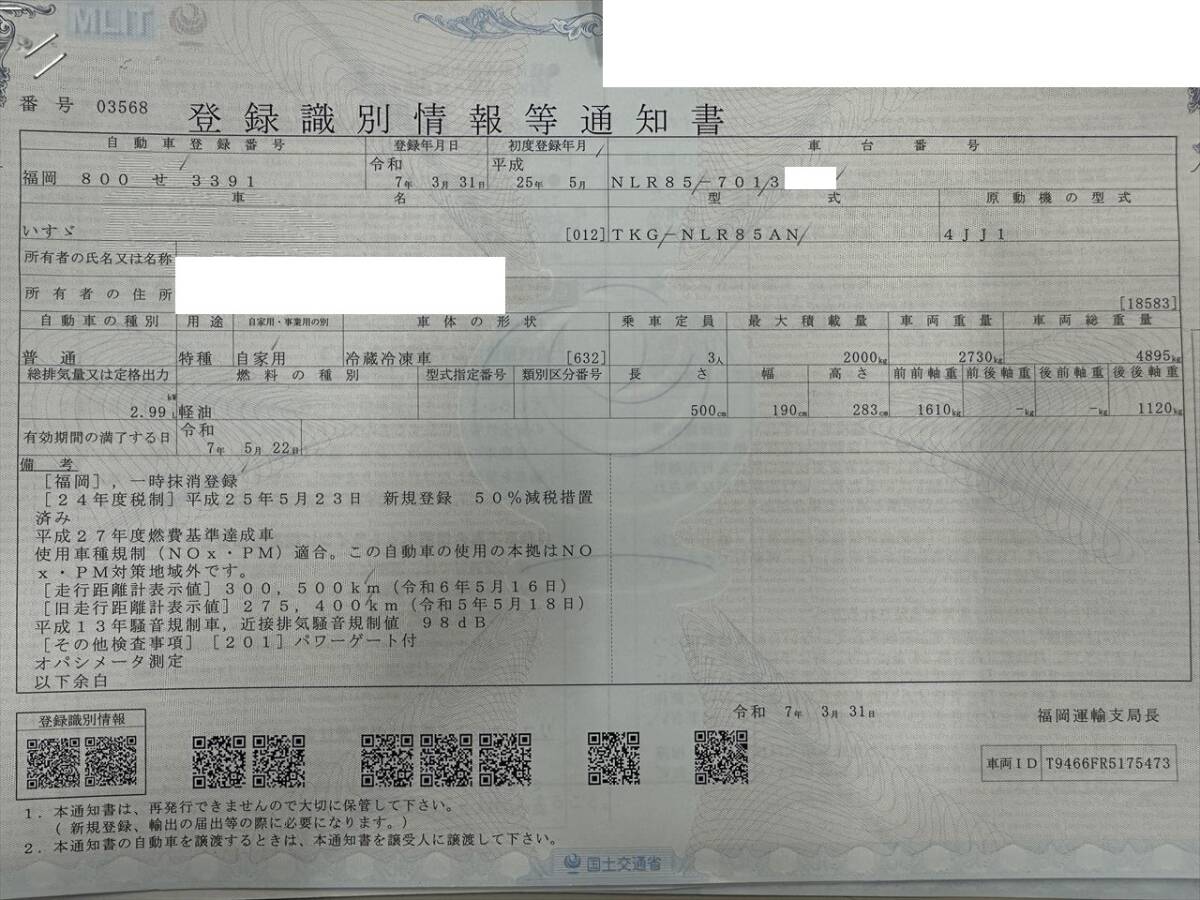 MLIT
番号 03568
登録識別情報等通知書
自動車登録番号 登録年月日 初度登録年月 車台番号
令和 平成
福岡 800 せ 3391 7年 3月 31日 25年 5月 NLR85-7013
車名 型式 原動機の型式
いすゞ [012] TKG-NLR85AN 4JJ1
所有者の氏名又は名称
所有者の住所
[18583]
自動車の種別 用途 自家用・事業用の別 車体の形状 乗車定員 最大積載量 車両重量 車両総重量
普通 特種 自家用 冷蔵冷凍車 [632] 3人 2000kg 2730kg 4895kg
総排気量又は定格出力 燃料の種別 型式指定番号 類別区分番号 長さ 幅 高さ 前前軸重 前後軸重 後前軸重 後後軸重
kW
2.99 L 軽油 500cm 190cm 283cm 1610kg -kg -kg 1120kg
有効期間の満了する日 令和
7年 5月 22日
備考
[福岡],一時抹消登録
[24年度税制]平成25年5月23日 新規登録 50%減税措置
済み
平成27年度燃費基準達成車
使用車種規制(NOx・PM)適合。この自動車の使用の本拠はNO
x・PM対策地域外です。
[走行距離計表示値]300,500km(令和6年5月16日)
[旧走行距離計表示値]275,400km(令和5年5月18日)
平成13年騒音規制車,近接排気騒音規制値 98dB
[その他検査事項][201]パワーゲート付
オパシメータ測定
以下余白
登録識別情報
令和 7年 3月 31日 福岡運輸支局長
車両ID T9466FR5175473
1.本通知書は、再発行できませんので大切に保管して下さい。
(新規登録、輸出の届出等の際に必要になります。)
2.本通知書の自動車を譲渡するときは、本通知書を譲受人に譲渡して下さい。
国土交通省